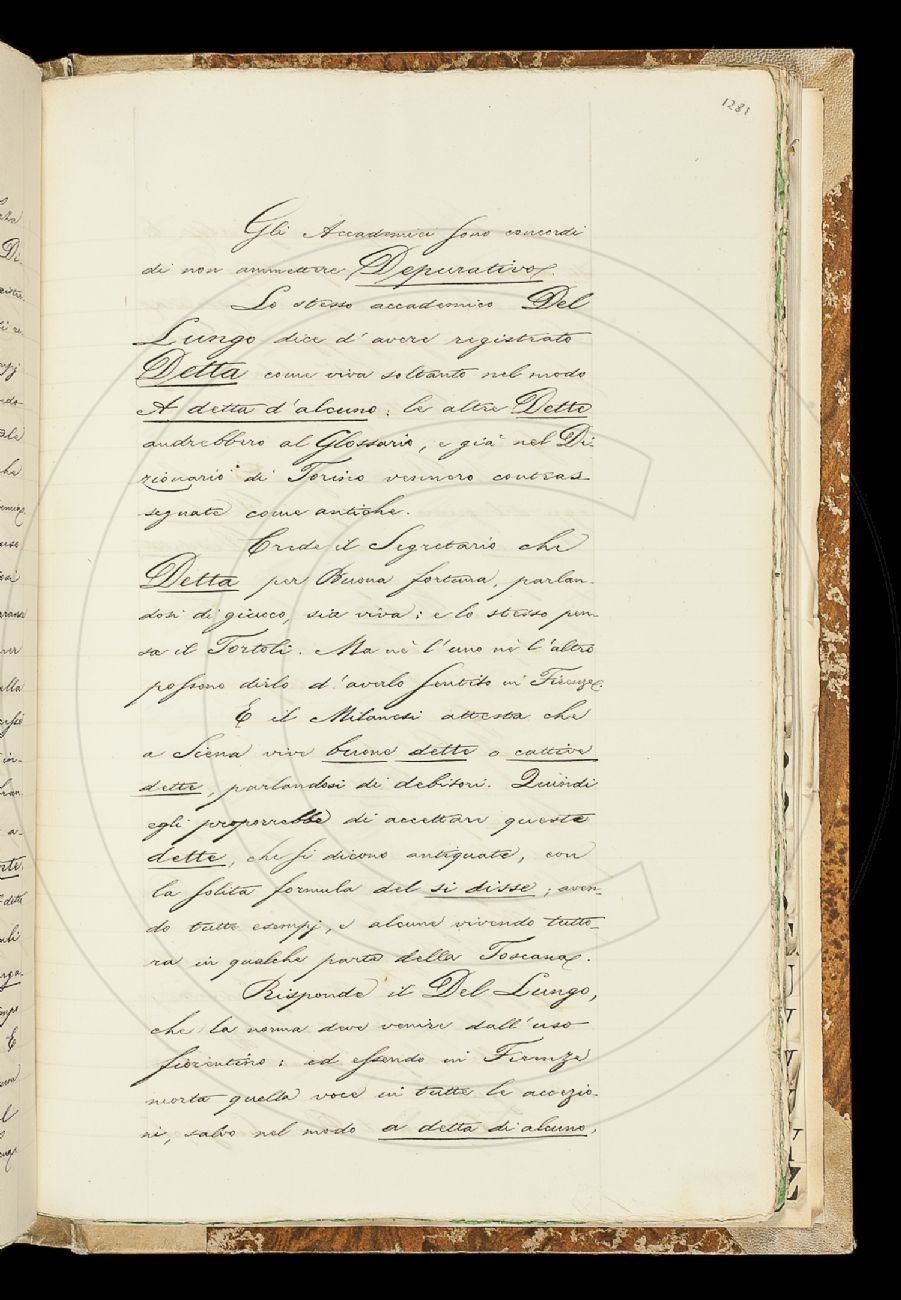 1281
Gli Accademici sono concordi
di non ammettere Depurativo.
Lo stesso accademico Del
Lungo dice d'avere registrato
Detta come viva soltanto nel modo
A detta d'alcuno; le altre Dette
andrebbero al Glossario, e già nel Di-
zionario di Torino vennero contras-
segnate come antiche.
Crede il Segretario che
Detta per Buona fortuna, parlan-
dosi di giuoco, sia viva; e lo stesso pen-
sa il Tortoli. Ma nè l'uno nè l'altro
possono dirlo d'averlo sentito in Firenze.
E il Milanesi attesta che
a Siena vive buone dette o cattive
dette, parlandosi di debitori. Quindi
egli proporrebbe di accettare queste
dette, che si dicono antiquate, con
la solita formula del si disse; aven-
do tutte esempj, e alcune vivendo tutto-
ra in qualche parte della Toscana.
Risponde il Del Lungo,
che la norma deve venire dall'uso
fiorentino; ed essendo in Firenze
morta quella voce in tutte le accezio-
ni, salvo nel modo a detta di alcuno,